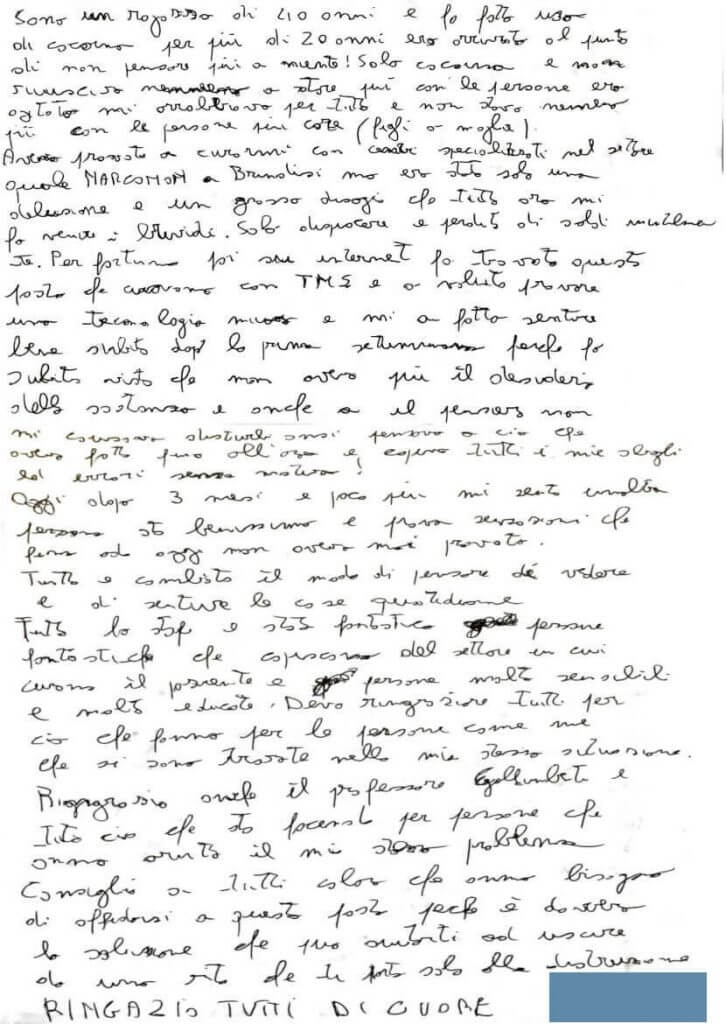 Sono un ragazzo di 40 anni e fo fatto uso
di cocaina per più di 20 anni ero arrivato al punto
di non pensare più a niente! Solo cocaina e non
riuscivo nemmeno a stare più con le persone ero
agitato mi arrabbiavo per tutto e non stavo nemeno
più con le persone più care (figli o moglie).
Avevo provato a curarmi con centri specializzati nel settore
quale NARCONON a Brindisi ma ero stato solo una
delusione e un grosso disagi che tutt ora mi
fa venire i brividi. Solo dispiacere e perdita di soldi
Per fortuna poi su internet fo trovato questo
posto che curavano con TMS e o voluto provare
una tecnologia nuova e mi a fatto sentire
bene subito dopo la prima settimana perche fo
subito visto che non avevo più il desiderio
della sostanza e anche a il pensiero non
mi disturbi anzi pensavo a cio che
avevo fatto fino all'ora e capivo tutti i mie sbagli
ed errori senza motivo!
Oggi dopo 3 mesi e poco più mi sento un'altra
persona sto benissimo e provo sensazioni che
fino ad oggi non avevo mai provato.
Tutto e cambiato il modo di pensare de vedere
e di sentire le cose quotidiane
Tutto lo staf e stato fantastico persone
fantastiche che capiscono del settore in cui
curano il paziente e persone molto sensibili
e molto educate. Devo ringraziare tutti per
cio che fanno per le persone come me
che si sono trovate nella mia stessa situazione.
anche il professore e
tutto cio che sta facendo per persone che
anno avuto il mio problema
Consiglio a tutti coloro che anno bisogno
di affidarsi a questo posto perche è davvero
la soluzione che puo aiutarti ad uscire
da una vita che ti porta solo alla distruzione
RINGAZIO TUTTI DI CUORE